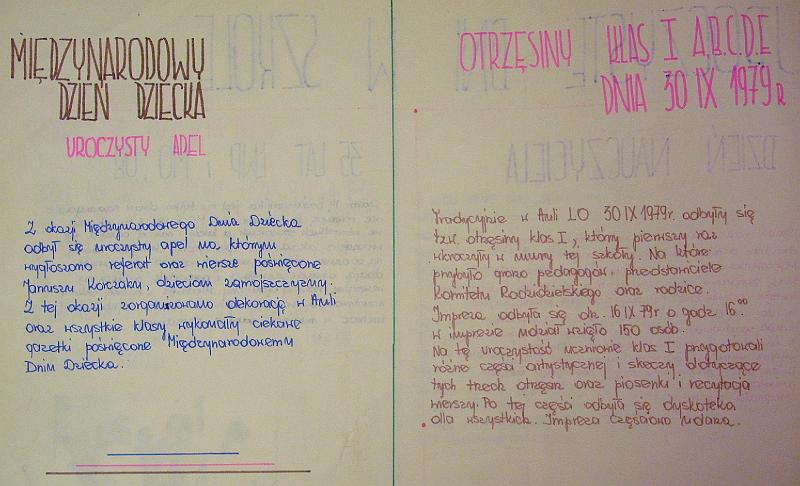 MIĘDZYNARODOWY
DZIEŃ DZIECKA
UROCZYSTY APEL
Z okazji Międzynarodowego Dnia Dziecka
odbył się uroczysty apel na którym
wygłoszono referat oraz wiersze poświęcone
Januszu Korczaku, dzieciom zamojszczyzny.
Z tej okazji zorganizowano dekorację w Auli
oraz wszystkie klasy wykonały ciekawe
gazetki poświęcone Międzynarodowemu
Dniu Dziecka.
OTRZĘSINY KLAS I A.B.C.D.E
DNIA 30 IX 1979 R
Tradycyjnie w Auli LO 30 IX 1979r. odbyły się
tzw. otrzęsiny klas I, który pierwszy raz
wkroczyły w mury tej szkoły. Na które
przybyło grono pedagogów, przedstawiciele
Komitetu Rodzicielskiego oraz rodzice.
Impreza odbyła się dn. 16 IX 79r o godz 16⁰⁰
w imprezie udział wzięło 150 osób.
Na tę uroczystość uczniowie klas I przygotowali
różne części artystycznej i skeczy dotyczące
tych trzech otrzęsin oraz piosenki i recytacja
wierszy. Po tej części odbyła się dyskoteka
dla wszystkich. Impreza częściowo udana.
35 LAT
DZIEŃ NAUCZYCIELA
W SZKOLE